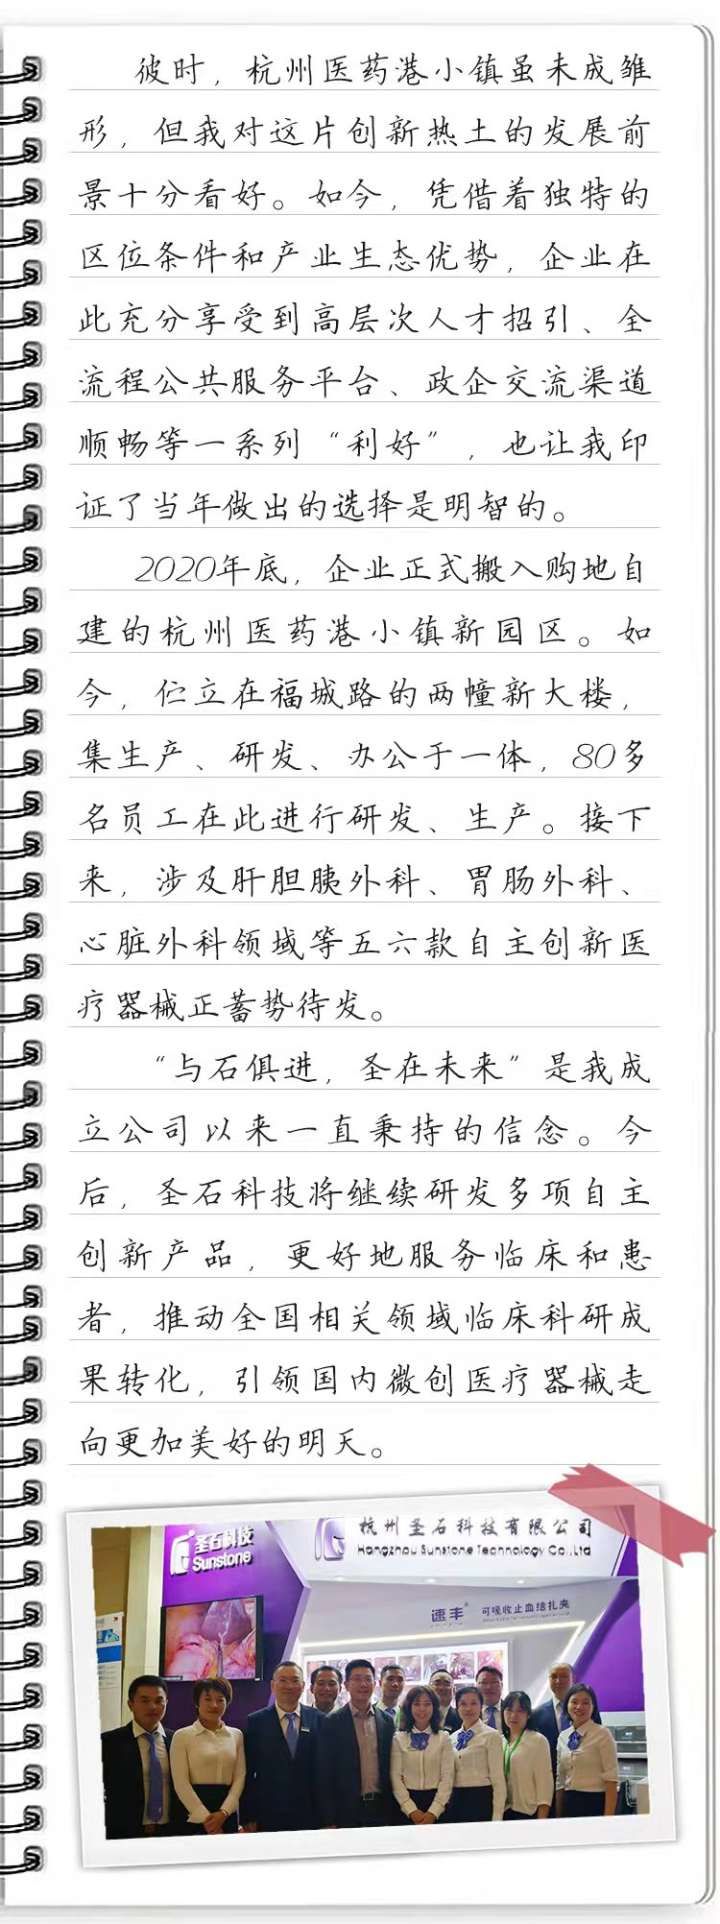 彼时，杭州医药港小镇虽未成雏
形，但我对这片创新热土的发展前
景十分看好。如今，凭借着独特的
区位条件和产业生态优势，企业在
此充分享受到高层次人才招引、全
流程公共服务平台、政企交流渠道
顺畅等一系列“利好”，也让我印
证了当年做出的选择是明智的。
2020年底，企业正式搬入购地自
建的杭州医药港小镇新园区。如
今，伫立在福城路的两幢新大楼，
集生产、研发、办公于一体，80多
名员工在此进行研发、生产。接下
来，涉及肝胆胰外科、胃肠外科、
心脏外科领域等五六款自主创新医
疗器械正蓄势待发。
“与石俱进，圣在未来”是我成
立公司以来一直秉持的信念。今
后，圣石科技将继续研发多项自主
创新产品，更好地服务临床和患
者，推动全国相关领域临床科研成
果转化，引领国内微创医疗器械走
向更加美好的明天。
圣石科技
Sunstone
杭州圣石科技有限公司
Hangzhou Sunstone Technology Co.,Ltd
速丰® 可吸收止血结扎夹